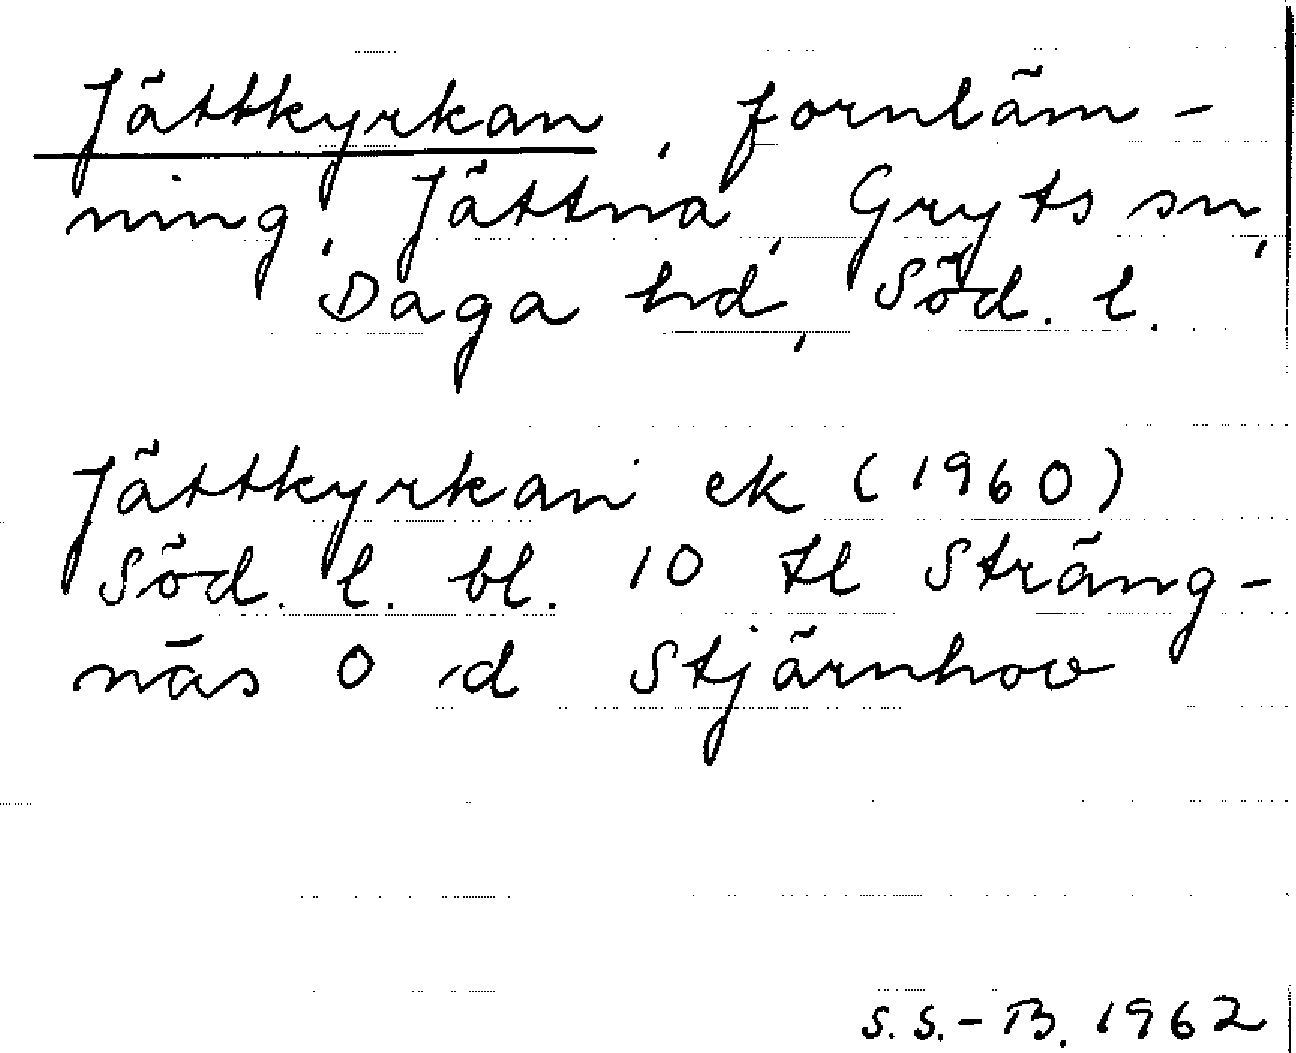 Jättkyrkan, fornläm-
ning, Jättna, Gryts sn,
Daga hd, Söd. l.
Jättkyrkan ek (1960)
Söd. l. bl. 10 tl Sträng-
näs O d Stjärnhov
S.S.-B. 1962